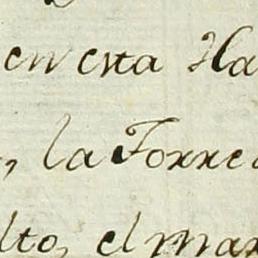 en esta Ha
, la Torre
lto, el mar